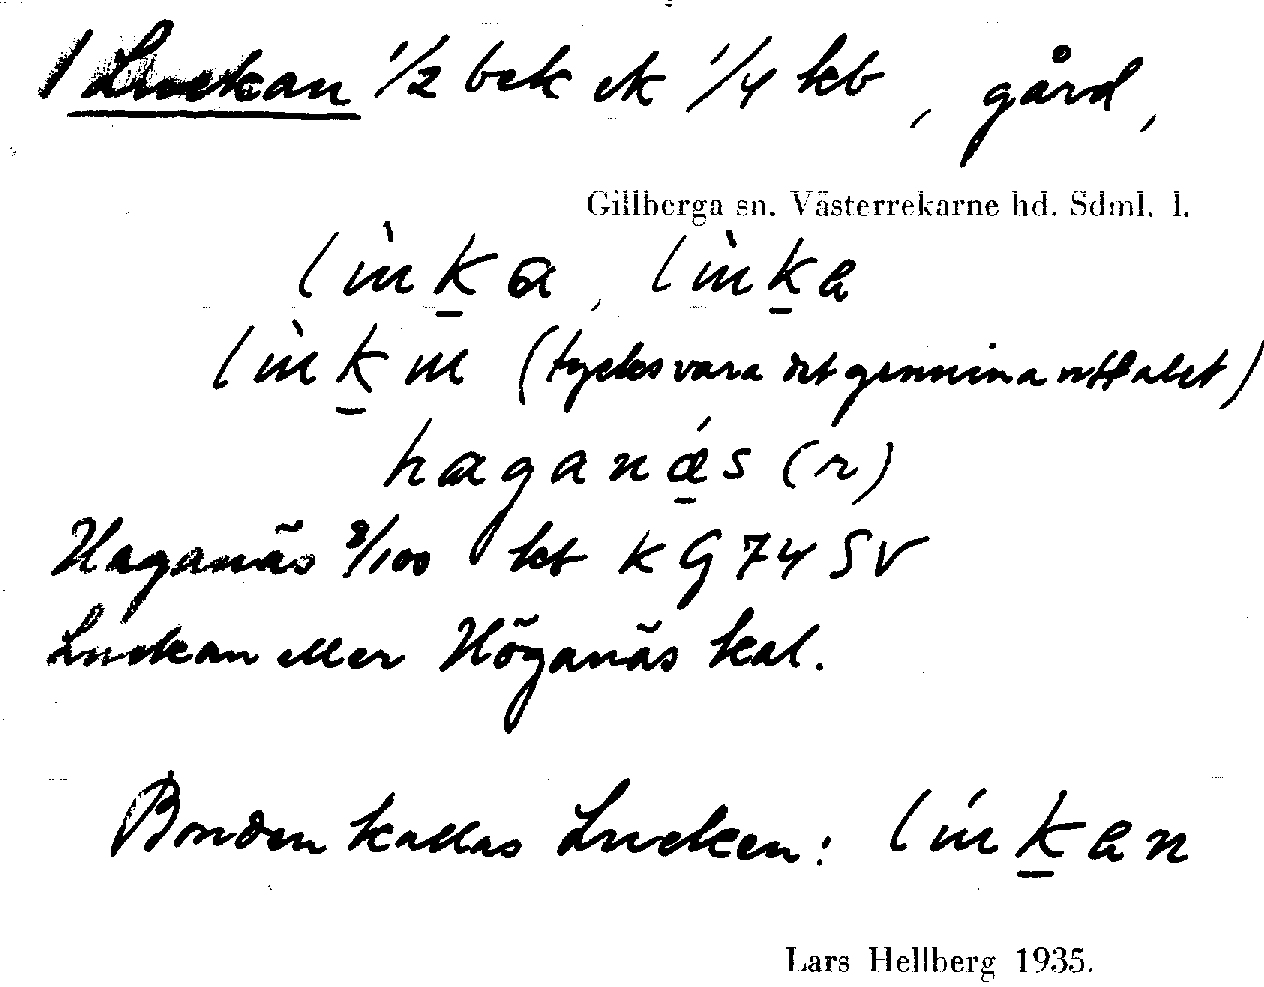 1 Luckan 1/2 bek sk 1/4 kb, gård,
Gillberga sn. Västerrekarne hd. Södml. l.
(tycks vara det genuina uttalet)
haganä́s (r)
Haganäs 8/100 kt K G74SV
Luckan eller Höganäs Kal.
Bonden kallas Lucken:
Lars Hellberg 1935.